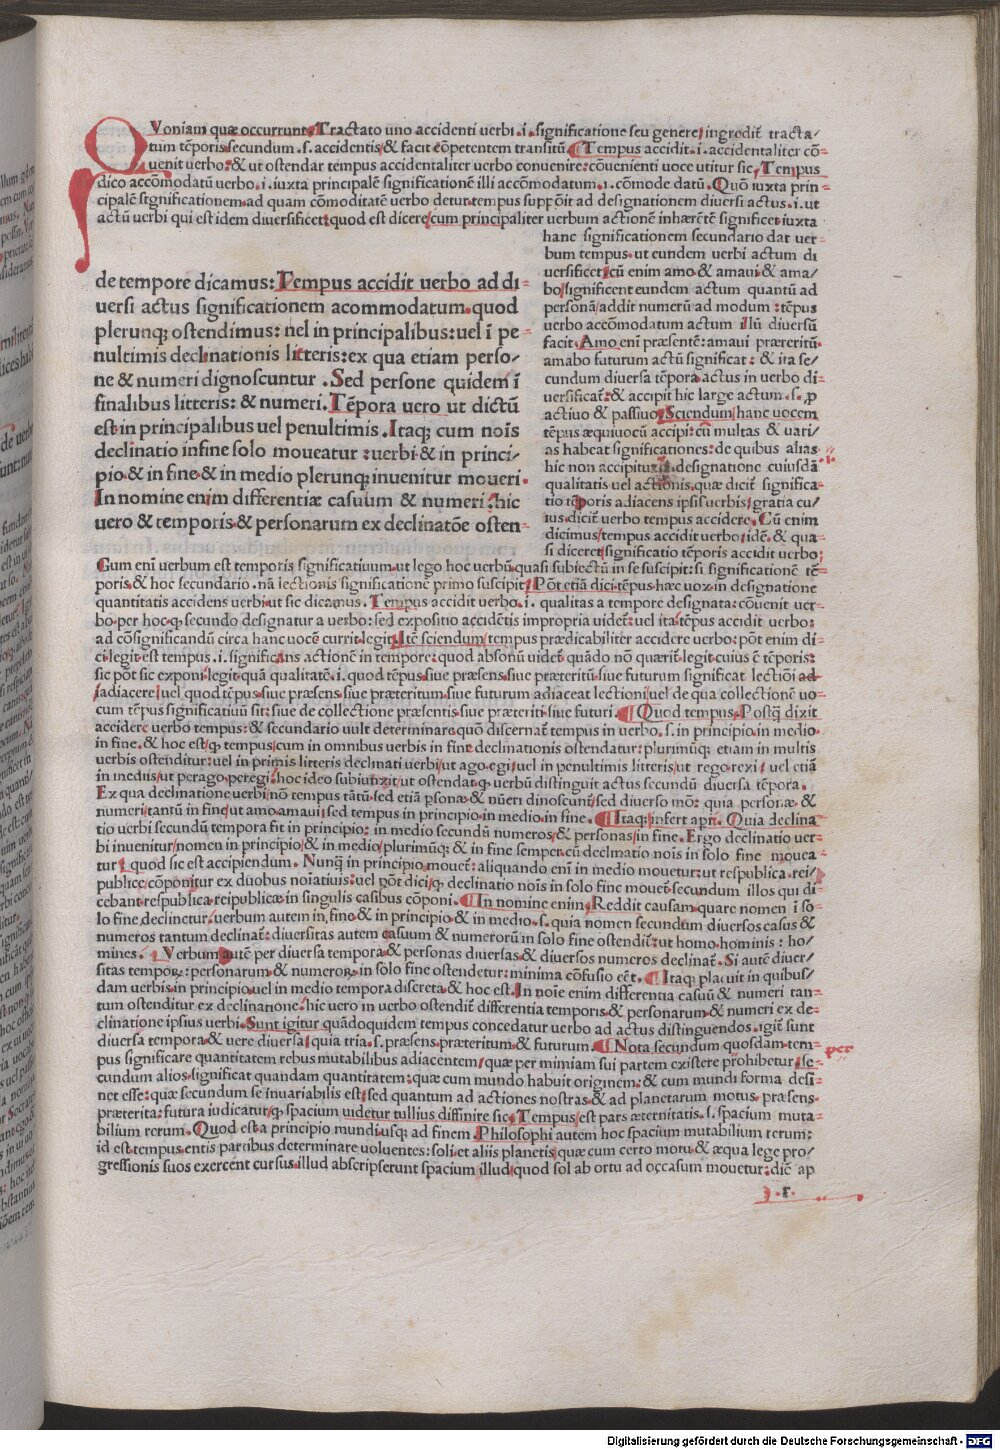 QVoniam quæ occurrunt. Tractato uno accidenti uerbi .i. significatione seu genere/ingredit̃ tracta/
tum tẽporis secundum .s. accidentis/& facit cõpetentem transitũ. Tempus accidit .i. accidentaliter cõ-
uenit uerbo:& ut ostendat tempus accidentaliter uerbo conuenire:cõuenienti uoce utitur sic, Tempus
dico accõmodatũ uerbo .i. iuxta principalẽ significationẽ illi accõmodatum .i. cõmode datũ. Quõ iuxta prin-
cipalẽ significationem.ad quam cõmoditatẽ uerbo detur.tempus suppõit ad designationem diuersi actus .i. ut
actũ uerbi qui est idem diuersificet:quod est dicere/cum principaliter uerbum actionẽ inhærẽtẽ significet iuxta
hanc significationem secundario dat uer-
bum tempus.ut eundem uerbi actum di
uersificet:cũ enim amo & amaui & ama/
bo/significent eundem actum quantũ ad
personã/addit numerũ ad modum :tẽpus
uerbo accõmodatum actum illũ diuersũ
facit. Amo enĩ præsentẽ:amaui præteritũ
amabo futurum actũ significat: & ita se/
cundum diuersa tẽpora.actus in uerbo di-
uersificat̃:& accipit hic large actum .s. p
actiuo & passiuo. Sciendum/hanc uocem
tẽpus æquiuocũ accipi:cũ multas & uari/
as habeat significationes:de quibus alias
hic non accipitur designatione cuiusdã
qualitatis uel actionis.quæ dicit̃ significa-
tio tẽporis adiacens ipsis uerbis/gratia cu/
ius.dicit̃ uerbo tempus accidere. Cũ enim
dicimus/tempus accidit uerbo:idẽ & qua-
si diceret/significatio tẽporis accidit uerbo:
de tempore dicamus: Tempus accidit uerbo ad di-
uersi actus significationem acommodatum.quod
plerunq; ostendimus: nel in principalibus:uel ĩ pe-
nultimis declinationis litteris:ex qua etiam perso/
ne & numeri dignoscuntur .Sed persone quidem ĩ
finalibus litteris: & numeri. Tẽpora uero ut dictũ
est in principalibus uel penultimis .Itaq; cum nõis
declinatio infine solo moueatur :uerbi & in princi/
pio & in fine & in medio plerunq; inuenitur moueri.
In nomine enim differentiæ casuum & numeri :hic
uero & temporis & personarum ex declinatõe osten-
Cum enĩ uerbum est temporis significatiuum.ut lego hoc uerbũ.quasi subiectũ in se suscipit:si significationẽ tẽ-
poris & hoc secundario .nã lectionis significationẽ primo suscipit/ Põt etiã dici tẽpus hæc uox in designatione
quantitatis accidens uerbi.ut sic dicamus. Tempus accidit uerbo .i. qualitas a tempore designata:cõuenit uer-
bo.per hoc q; secundo designatur a uerbo:sed expositio accidẽtis impropria uidet̃:uel ita/tẽpus accidit uerbo:
ad cõsignificandũ circa hanc uocẽ currit.legit. Itẽ sciendum/tempus prædicabiliter accidere uerbo:põt enim di-
ci legit est tempus .i. significans actionẽ in tempore:quod absonũ uidet̃ quãdo nõ quærit̃.legit cuius ẽ tẽporis:
sic põt sic exponi.legit quã qualitatẽ .i. quod tẽpus/siue præsens/siue præteritũ siue futurum significat lectiõi ad
/adiacere/uel quod tẽpus siue præsens.siue præteritum.siue futurum adiaceat lectioni/uel de qua collectionẽ uo-
cum tẽpus significatiuũ sit:siue de collectione præsentis.siue præteriti.siue futuri. Quod tempus. Postq̃ dixit
accidere uerbo tempus:& secundario uult determinare quõ discernat̃ tempus in uerbo .s. in principio.in medio
in fine.& hoc est/q; tempus/cum in omnibus uerbis in fine declinationis ostendatur:plurimũq; etiam in multis
uerbis ostenditur:uel in primis litteris declinati uerbi/ut ago.egi/uel in penultimis litteris/ut rego.rexi/ uel etiã
in mediis/ut perago.peregi/hoc ideo subiunxit/ut ostendat q; uerbũ distinguit actus secundũ diuersa tẽpora.
Ex qua declinatione uerbi/nõ tempus tãtũ.sed etiã psonæ & nũeri dinoscunt̃/sed diuerso mõ: quia personæ &
numeri/tantũ in fine/ut amo.amaui/sed tempus in principio.in medio.in fine. Itaq; infert aptĩ. Quia declina-
tio uerbi secundũ tempora fit in principio: in medio secundũ numeros/& personas/in fine. Ergo declinatio uer-
bi inuenitur/nomen in principio/& in medio/plurimũq; & in fine semper.cũ declinatio nõis in solo fine mouea-
tur/ quod sic est accipiendum. Nunq̃ in principio mouet̃: aliquando enĩ in medio mouetur:ut respublica.rei/
publicæ/cõponitur ex duobus noĩatiuis:uel põt dici/q; declinatio nõis in solo fine mouet̃ secundum illos qui di-
cebant respublica.reipublicæ in singulis casibus cõponi. In nomine enim. Reddit causam.quare nomen ĩ so-
lo fine declinetur.uerbum autem in fino & in principio & in medio .s. quia nomen secundum diuersos casus &
numeros tantum declinat̃: diuersitas autem casuum & numerorũ in solo fine ostendit̃:ut homo.hominis : ho/
mines. Verbum autẽ per diuersa tempora & personas diuersas & diuersos numeros declinat̃. Si autẽ diuer/
sitas temporꝝ:personarum & numerorꝝ in solo fine ostendetur:minima cõfusio eẽt. Itaq; placuit in quibus/
dam uerbis.in principio.uel in medio tempora discreta.& hoc est. In noĩe enim differentia casuũ & numeri tan-
tum ostenditur ex declinatione .hic uero in uerbo ostendit̃ differentia temporis.& personarum & numeri ex de-
clinatione ipsius uerbi. Sunt igitur quãdoquidem tempus concedatur uerbo ad actus distinguendos .igit̃ sunt
diuersa tempora & uere diuersa/quia tria .s. præsens.præteritum & futurum. Nota secundum quosdam.tem-
pus significare quantitatem rebus mutabilibus adiacentem/quæ per mimiam sui partem existere prohibetur:/se-
cundum alios.significat quandam quantitatem:quæ cum mundo habuit originem.& cum mundi forma desi-
net esse:quæ secundum se inuariabilis est/sed quantum ad actiones nostras & ad planetarum motus .præsens.
præterita:futura iudicatur/q; spacium uidetur tullius diffinire sic. Tempus/est pars æternitatis .s. spacium muta-
bilium rerum. Quod est a principio mundi usq; ad finem. Philosophi autem hoc spacium mutabilium rerum:
id est tempus.entis partibus determinare uoluentes:soli et aliis planetis/quæ cum certo motu & æqua lege pro/
gressionis suos exercent cursus.illud abscripserunt spacium illud/quod sol ab ortu ad occasum mouetur:dic̃ ap
per
.r.
Digitalisierung gefördert durch die Deutsche Forschungsgemeinschaft - DFG